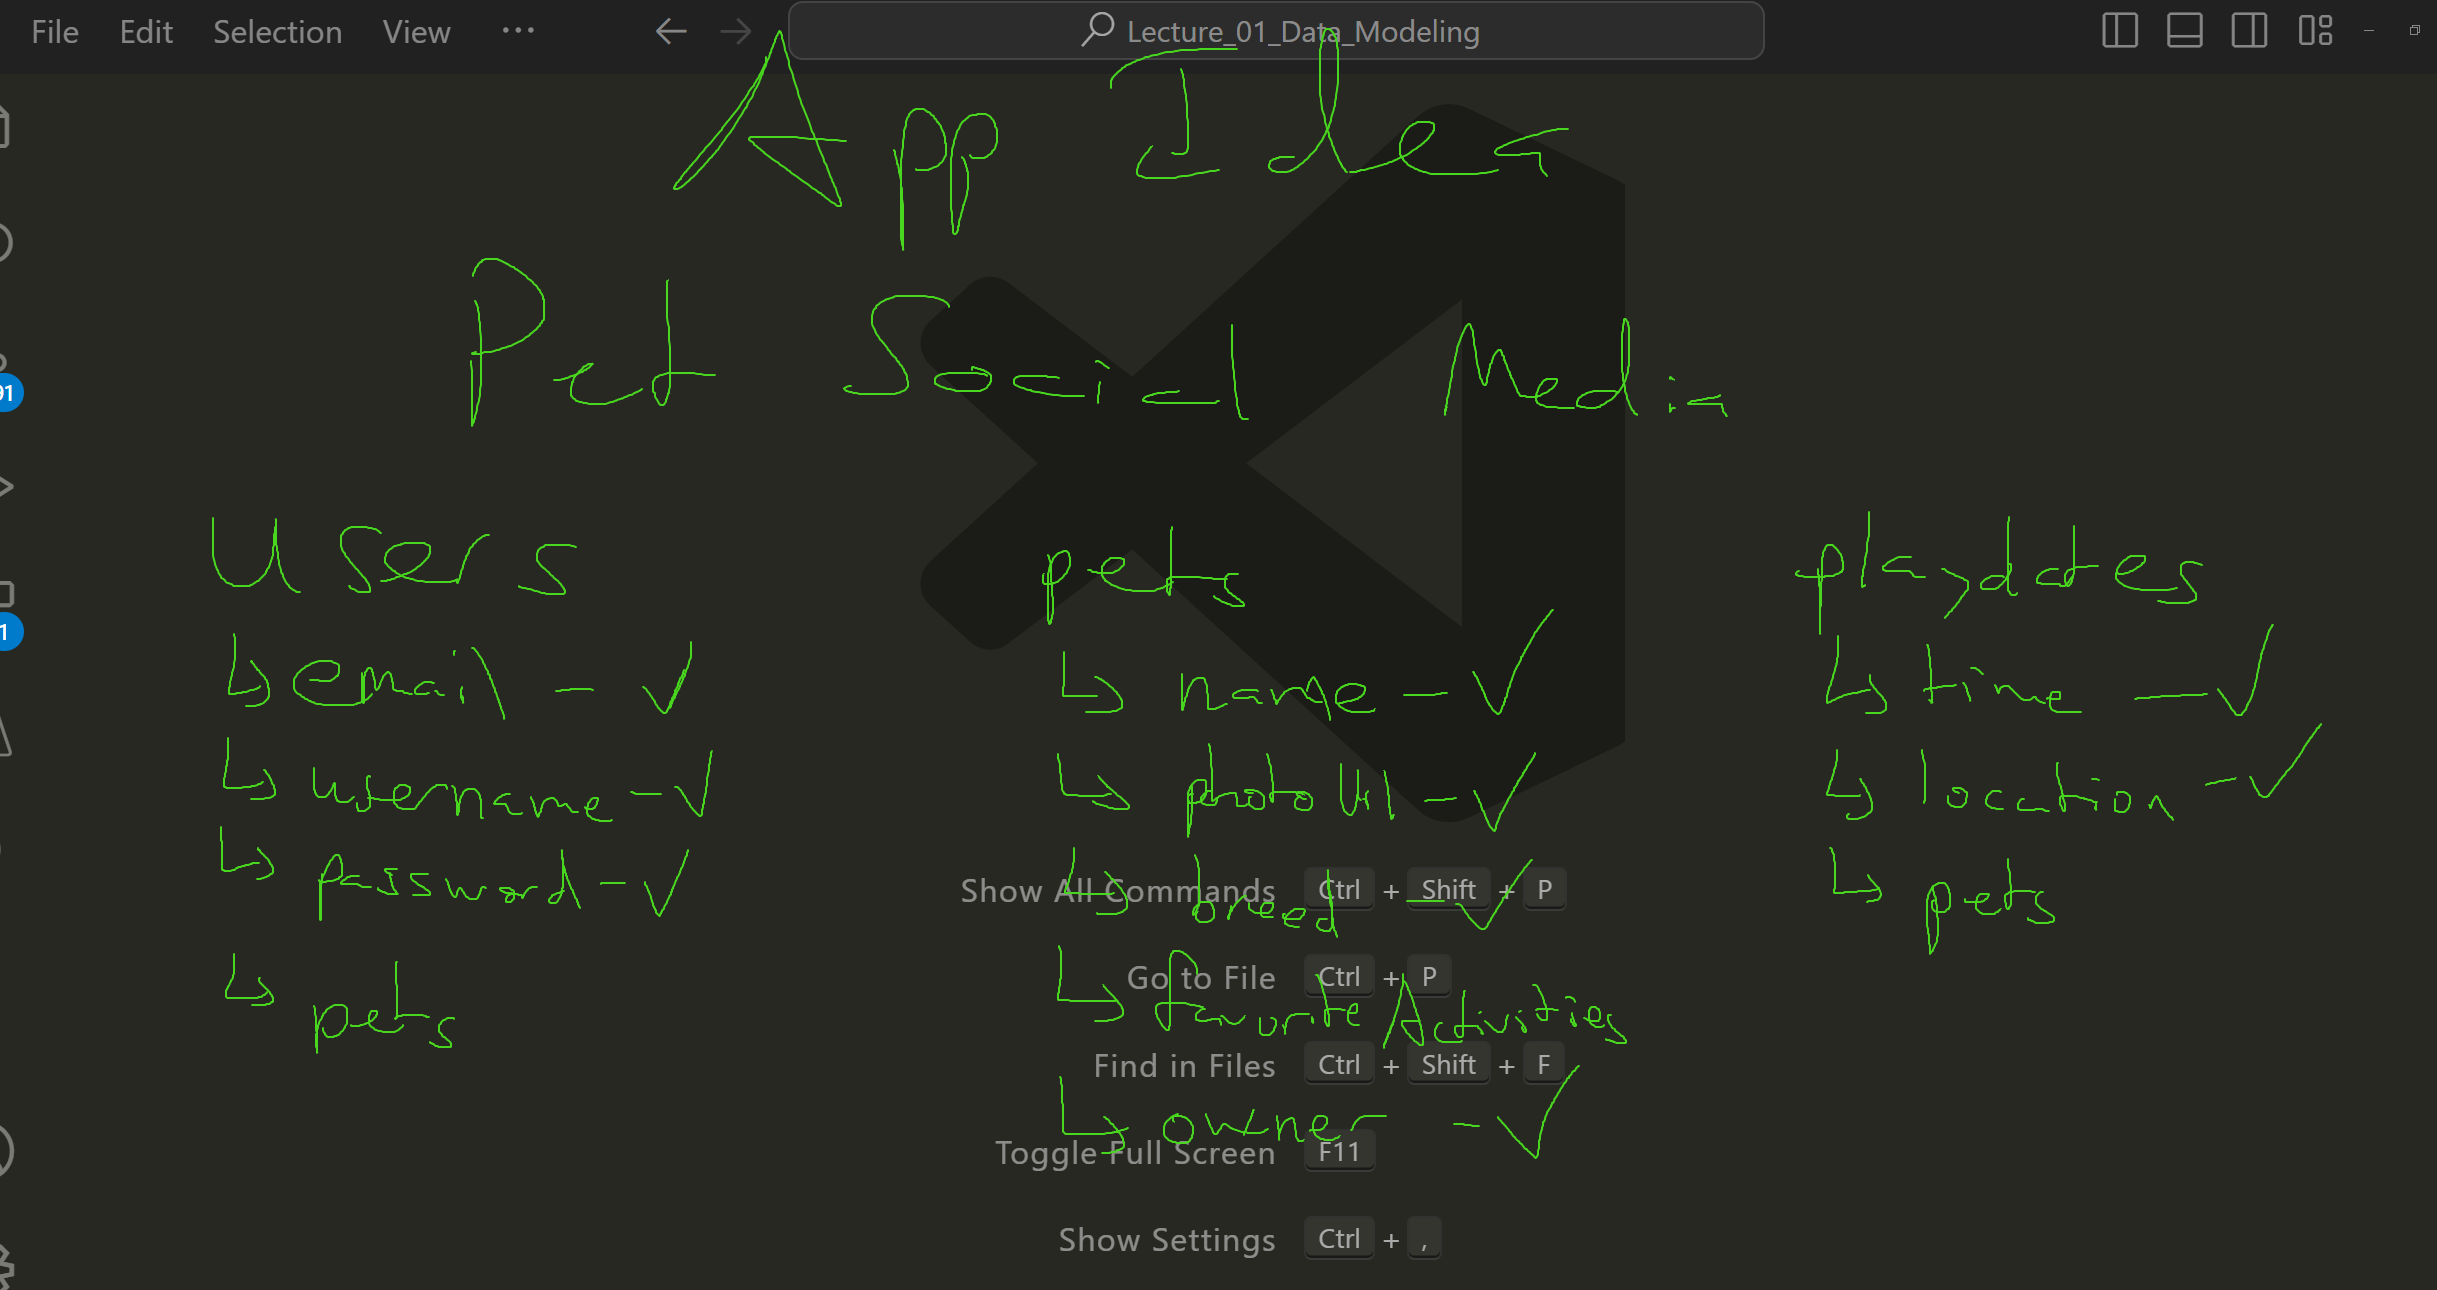 File Edit Selection View ... Lecture_01_Data_Modeling
App Idea
Pet Social Media
Users
↳ email - ✓
↳ username - ✓
↳ password - ✓
↳ pets
pets
↳ name - ✓
↳ photoUrl - ✓
↳ breed - ✓
↳ favorite Activities
↳ owner - ✓
playdates
↳ time - ✓
↳ location - ✓
↳ pets
Show All Commands Ctrl + Shift + P
Go to File Ctrl + P
Find in Files Ctrl + Shift + F
Toggle Full Screen F11
Show Settings Ctrl + ,
1